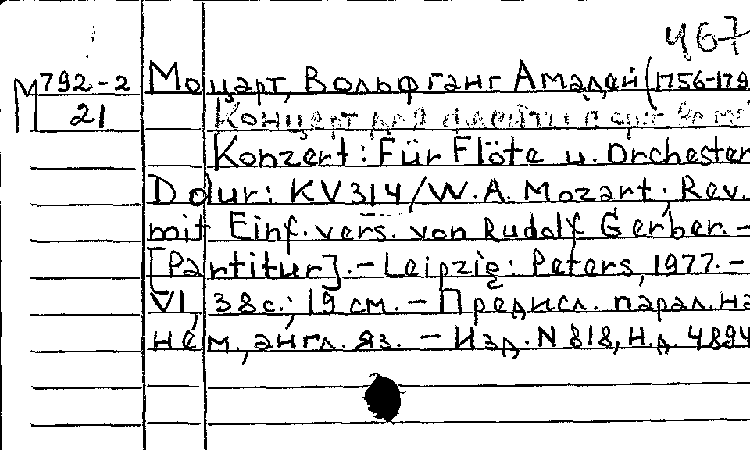 467
М 792-2 Моцарт, Вольфганг Амадей (1756-179
21 Концерт для флейты с орк
Konzert: Für Flöte u. Orchester
D dur: KV 314/W. A. Mozart; Rev.
mit Einf. vers. von Rudolf Gerber. –
[Partitur]. – Leipzig: Peters, 1977. –
VI, 38 с.; 19 см. – Предисл. парал. на
нем., англ. яз. – Изд. N 818, Н.д. 4894